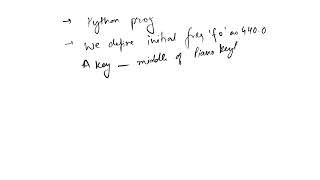 → Python prog
→ We define initial freq 'f0' as 440.0
A key — middle of Piano key